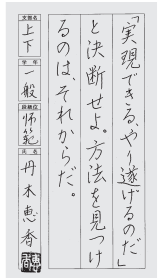 「実現できる、やり遂げるのだ」
と決断せよ。方法を見つけ
るのは、それからだ。
支部名
上下
学年
一般
段級位
師範
氏名
丹木恵香